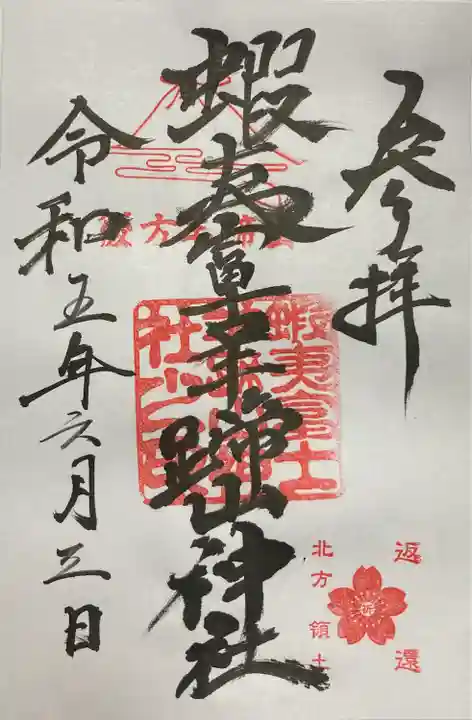 参拝
蝦夷富士羊蹄山神社
令和五年六月三日
蝦夷富士
社之印
返還
北方領土
祈